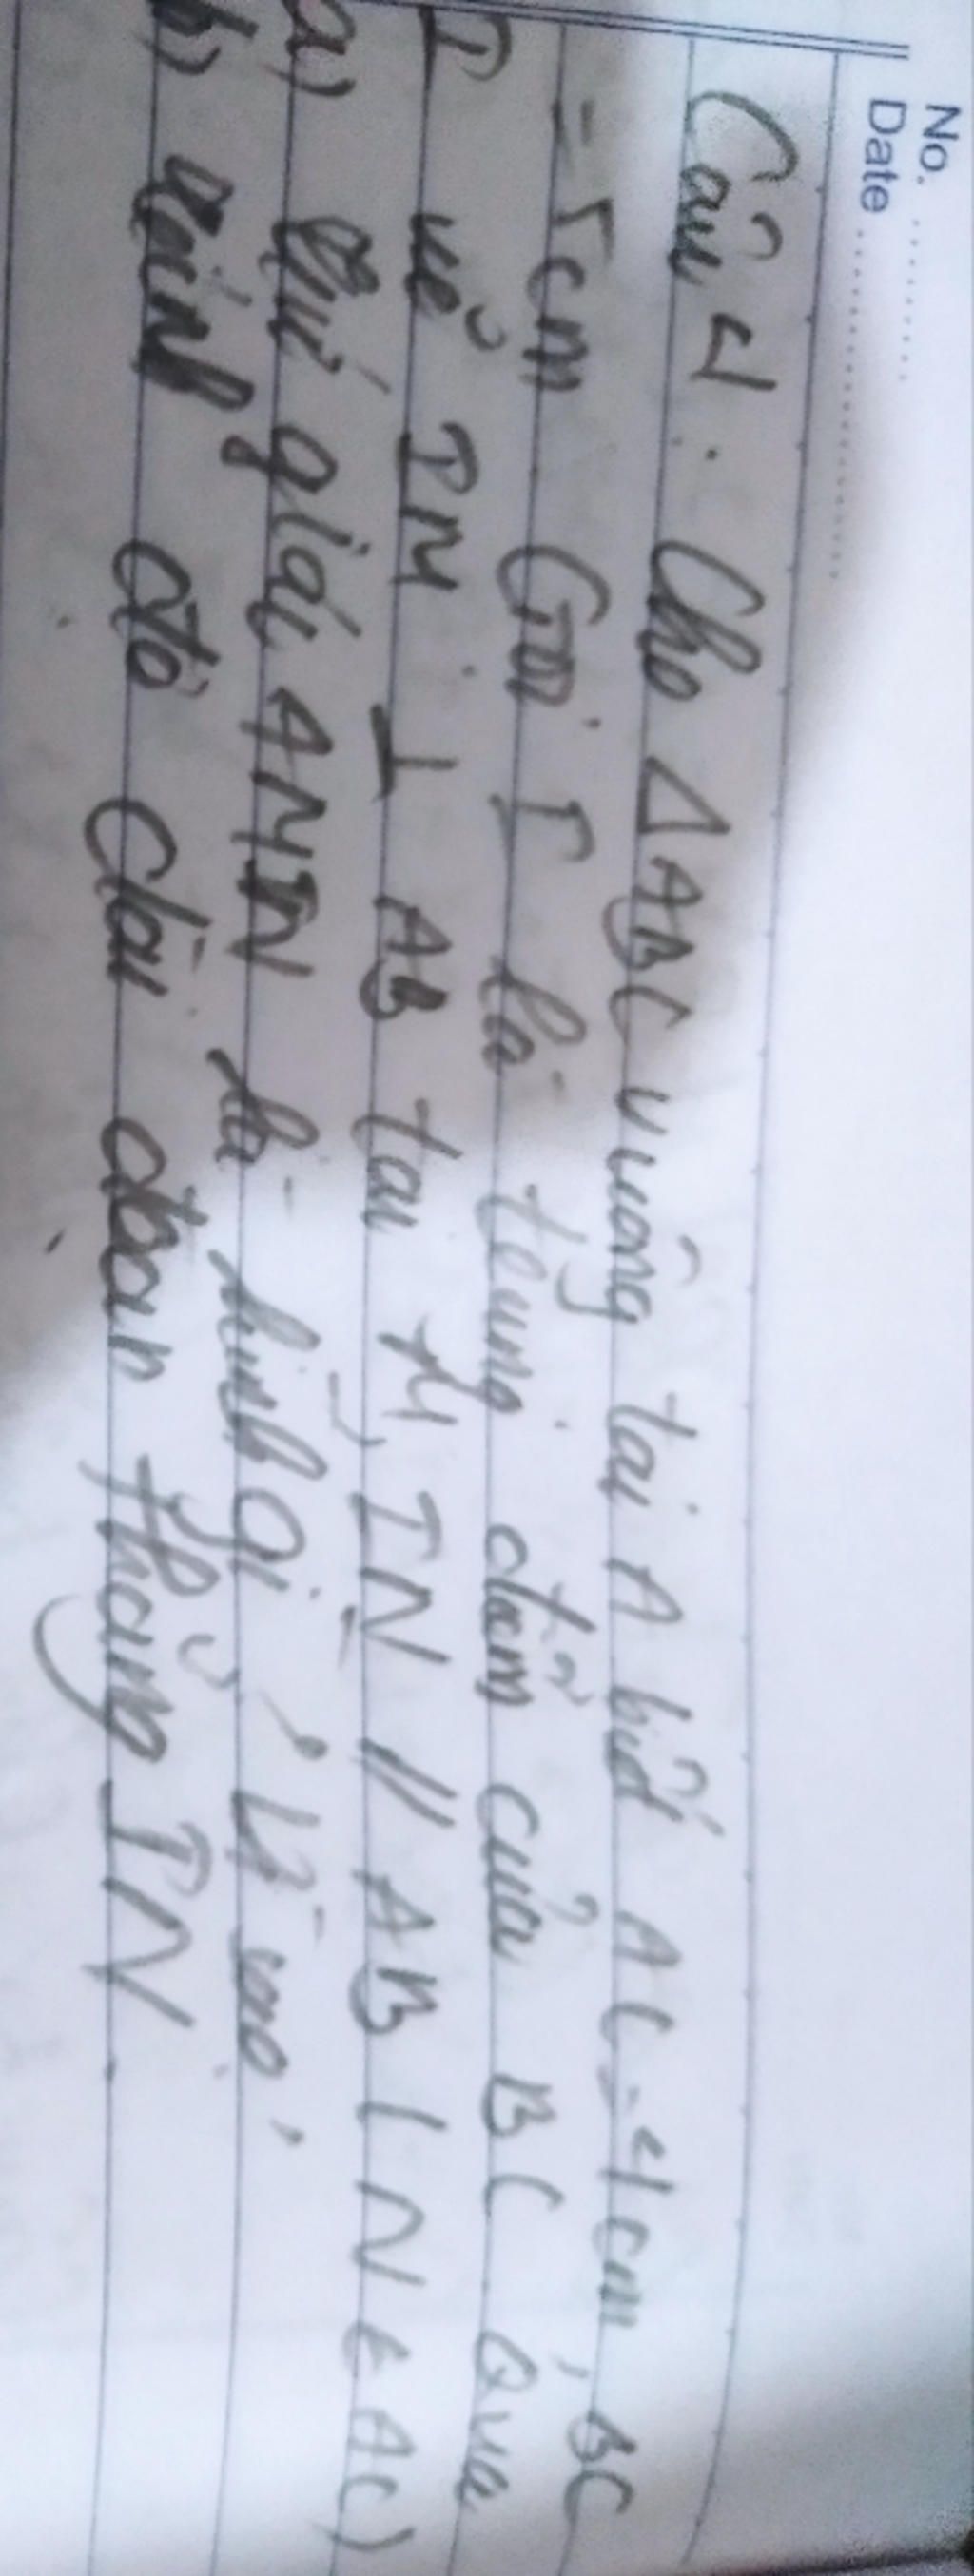 No. ..........
Date ....................
Câu 4. Cho ΔABC vuông tại A biết AC = 4cm, BC
= 5cm Gọi I là trung điểm của BC Qua
I kẻ IM ⊥ AB tại M, IN // AB (N ∈ AC)
a) giác AMIN là hình gì ? Vì sao ?
b) độ dài đoạn thẳng IN.